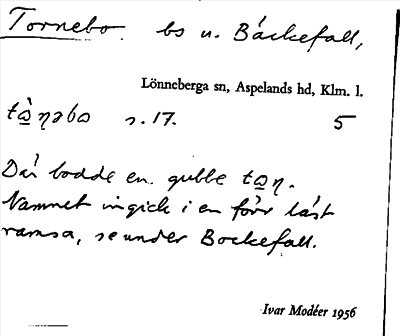 Tornebo. bs u. Bäckefall,
Lönneberga sn, Aspelands hd, Klm. l.
tò̲ŋəbo s. 17. 5
Där bodde en gubbe to̲ŋ.
Namnet ingick i en förr läst
ramsa, se under Bockefall.
Ivar Modéer 1956